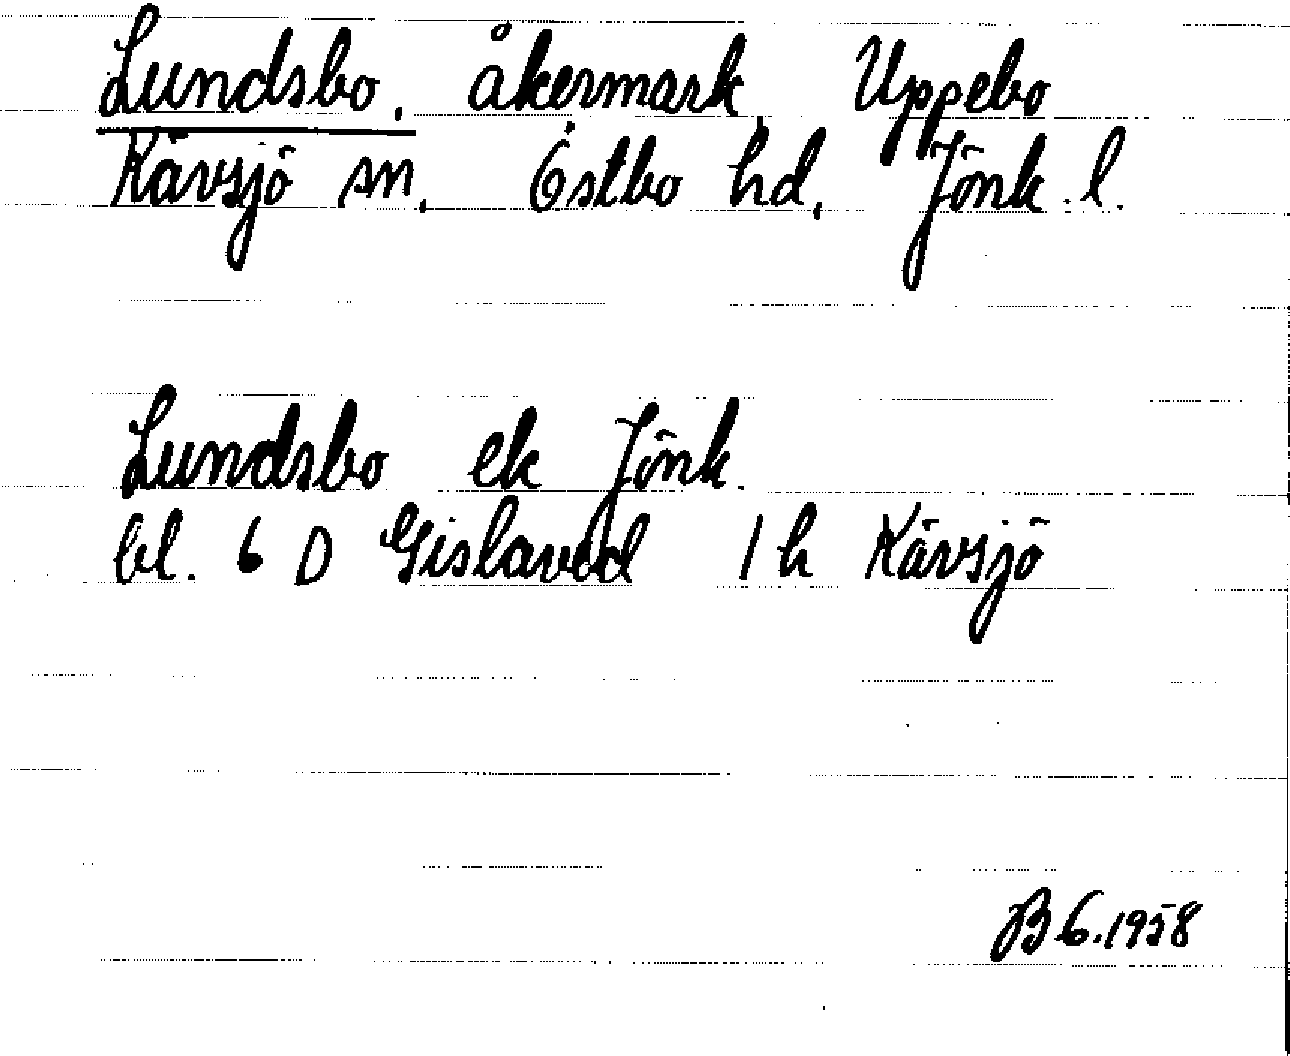 Lundsbo, åkermark, Uppebo
Kävsjö sn, Östbo hd, Jönk. l.
Lundsbo ek Jönk.
bl. 6 D Gislaved 1 h Kävsjö
B 6.1958